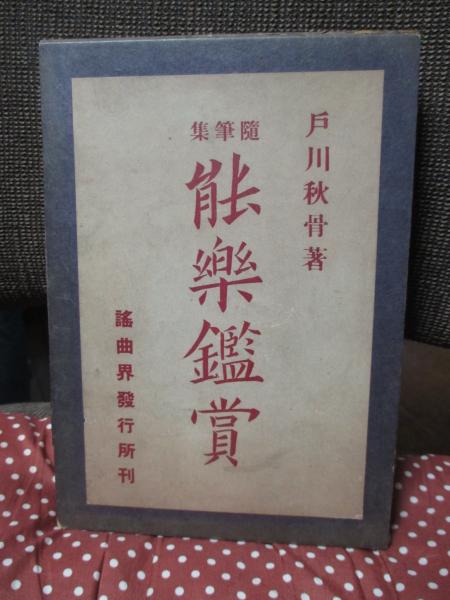 戶川秋骨著
隨筆集
能樂鑑賞
謠曲界發行所刊